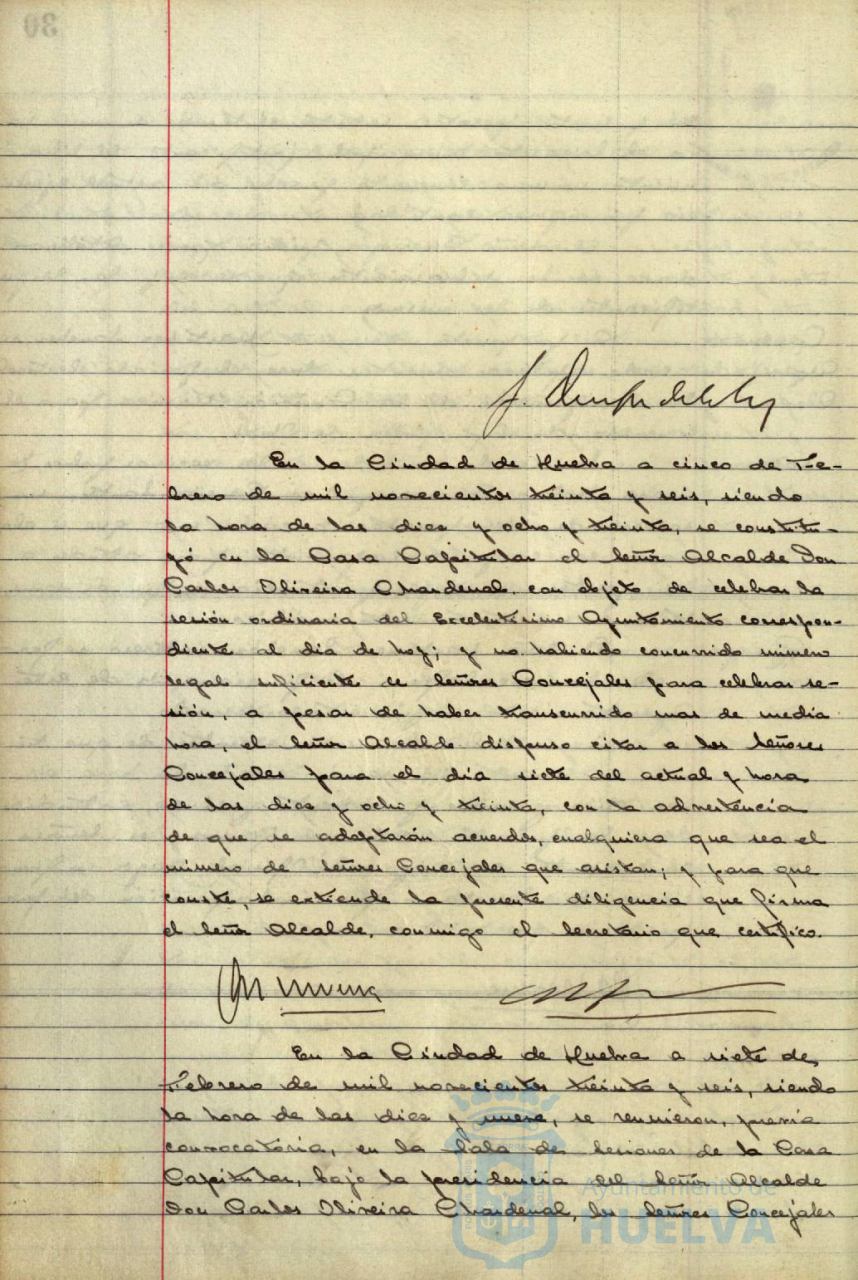 En la Ciudad de Huelva a cinco de Fe-
brero de mil novecientos treinta y seis, siendo
la hora de las diez y ocho y treinta, se constitu-
yó en la Casa Capitular el Señor Alcalde Don
Carlos Oliveira Chardenal, con objeto de celebrar la
sesión ordinaria del Excelentísimo Ayuntamiento correspon-
diente al día de hoy; y no habiendo concurrido número
legal suficiente de Señores Concejales para celebrar se-
sión, a pesar de haber transcurrido mas de media
hora, el Señor Alcalde dispuso citar a los Señores
Concejales para el día siete del actual y hora
de las diez y ocho y treinta, con la advertencia
de que se adoptarán acuerdos, cualquiera que sea el
número de Señores Concejales que asistan; y para que
conste, se extiende la presente diligencia que firma
el Señor Alcalde, conmigo el Secretario que certifico.
En la Ciudad de Huelva a siete de
Febrero de mil novecientos treinta y seis, siendo
la hora de las diez y nueve, se reunieron, previa
convocatoria, en la Sala de Sesiones de la Casa
Capitular, bajo la presidencia del Señor Alcalde
Don Carlos Oliveira Chardenal, los Señores Concejales
Ayuntamiento de
HUELVA